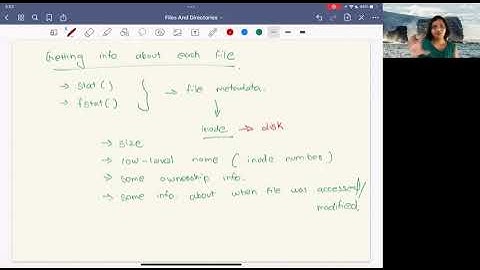 Files And Directories
Getting info about each file.
→ stat()
→ fstat()
→ file metadata.
inode → disk
→ size
→ low-level name (inode number)
→ some ownership info.
→ some info about when file was accessed/
modified.